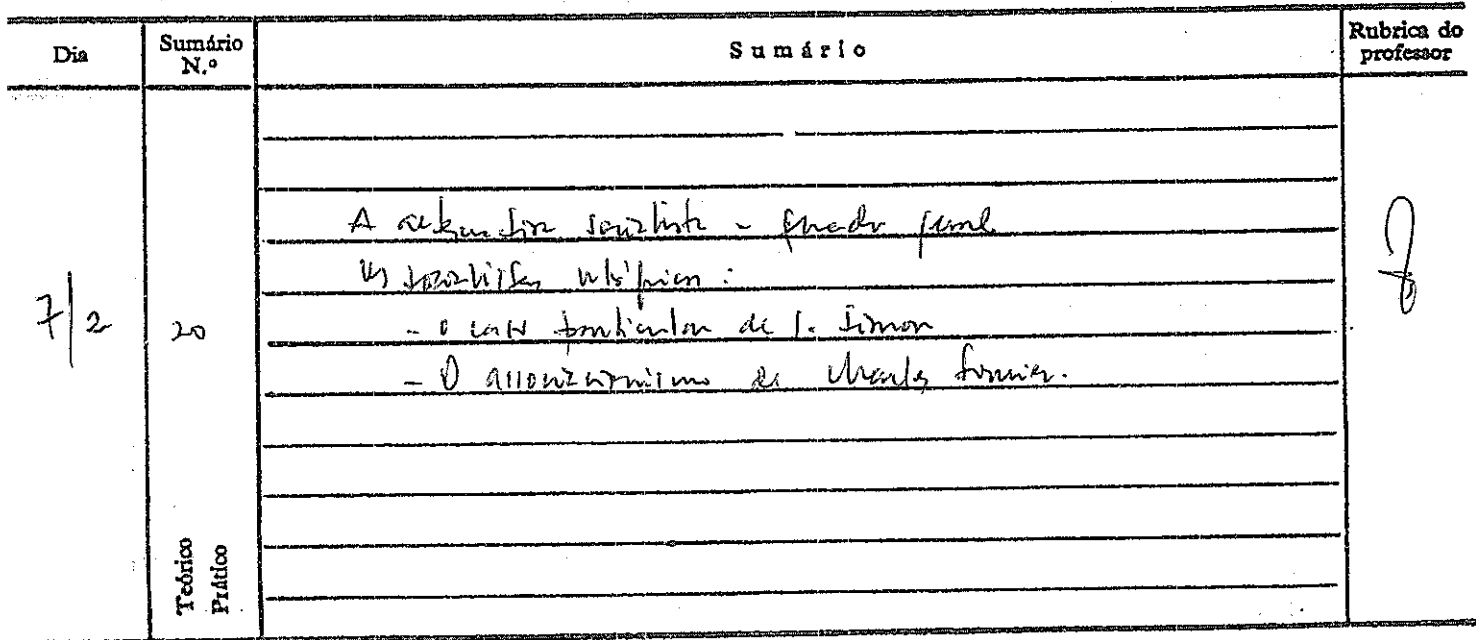 Dia
Sumário N.º
Sumário
Rubrica do professor
7/2
20
A alternativa socialista - quadro geral
Os socialistas utópicos:
- o caso particular de S. Simon
- O associacionismo de Charles Fourier.
Teórico
Prático